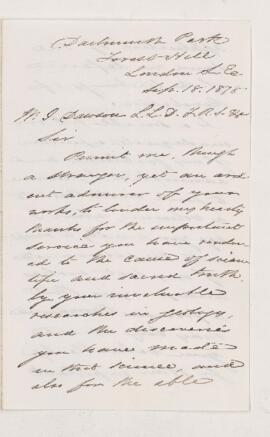 Dartmouth Park
Forest Hill
London S.E.
Sep. 18. 1878
W. J. Dawson L.L.D. F.R.S. &c
Sir
Permit me, though
a stranger, yet an ard-
ent admirer of your
works, to tender my hearty
thanks for the important
service you have render-
ed to the cause of scien-
tific and sacred truth,
by your invaluable
researches in geology,
and the discoveries
you have made
in that science, and
also for the able